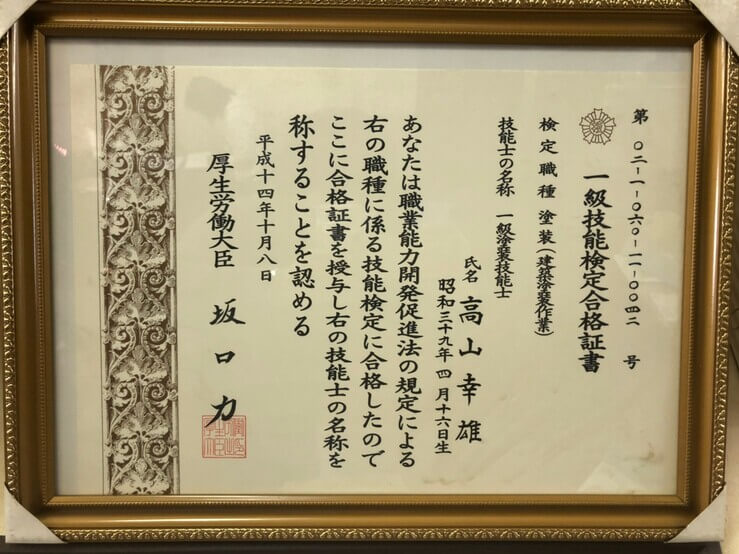 第〇二-一-〇六〇-一一-〇〇四二号
一級技能検定合格証書
検定職種 塗装(建築塗装作業)
技能士の名称 一級塗装技能士
氏名 高山幸雄
昭和三十九年四月十六日生
あなたは職業能力開発促進法の規定による
右の職種に係る技能検定に合格したので
ここに合格証書を授与し右の技能士の名称を
称することを認める
平成十四年十月八日
厚生労働大臣 坂口力